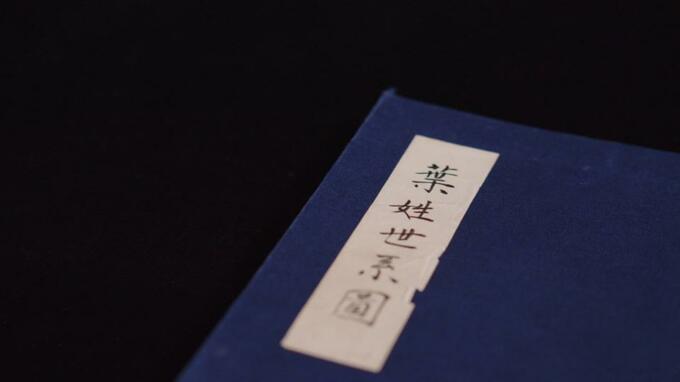 葉姓世系圖